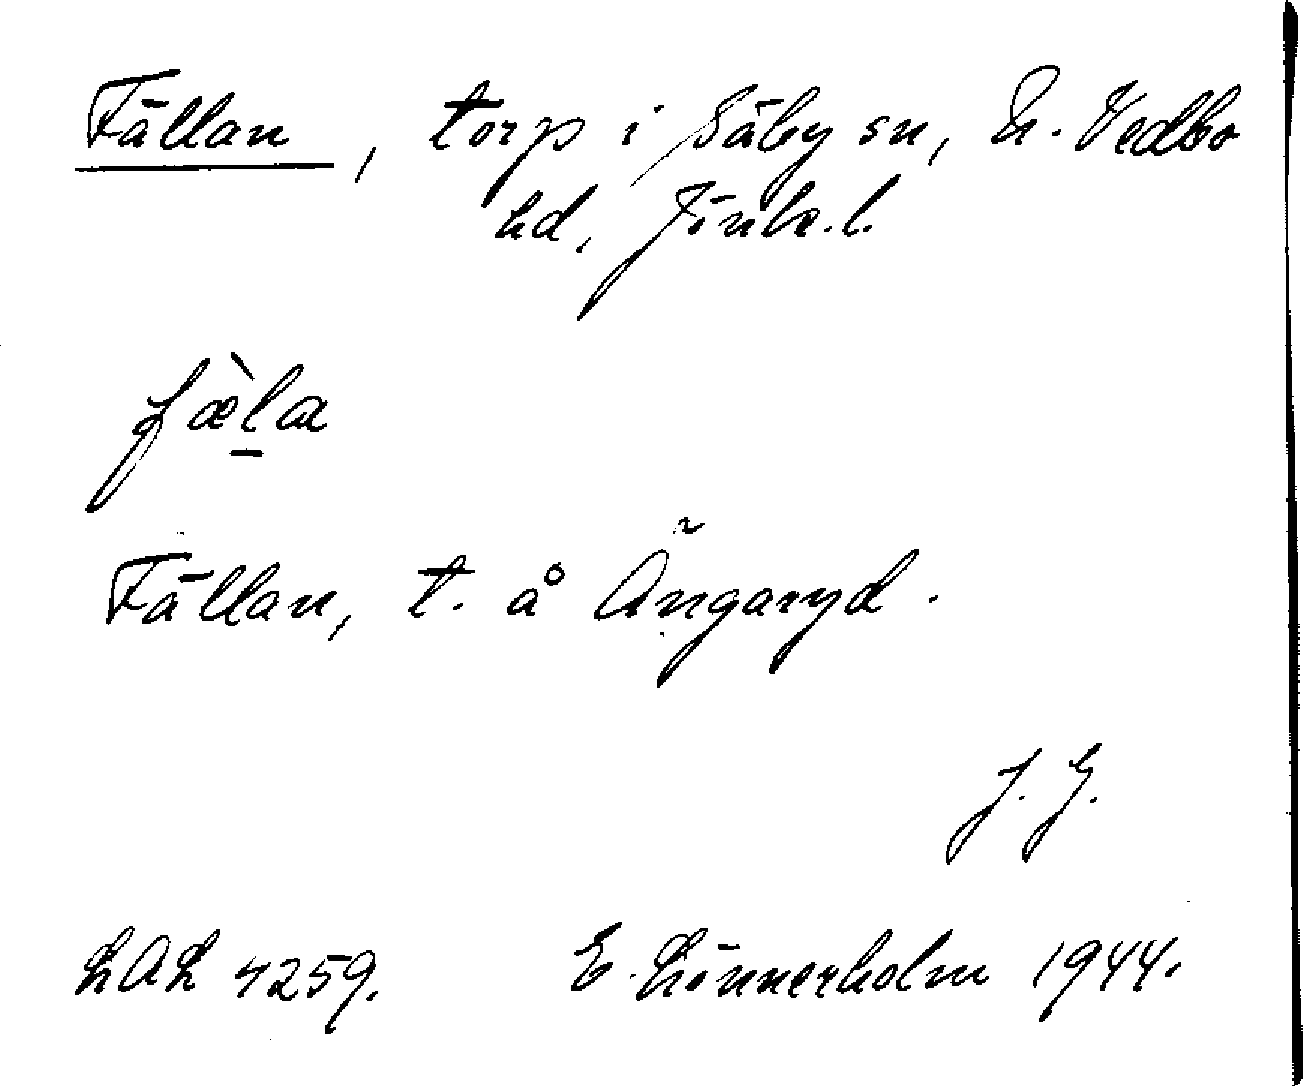 Fällan, torp i Säby sn, N. Vedbo
hd, Jönk. l.
fæ̀l̲a
Fällan, t. å Ängaryd.
J. G.
LAL 4259. E. Lönnerholm 1944.